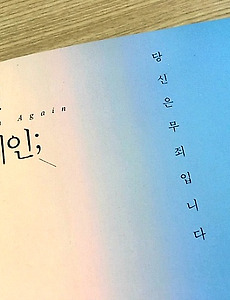 Again
인;
당신은 무죄입니다